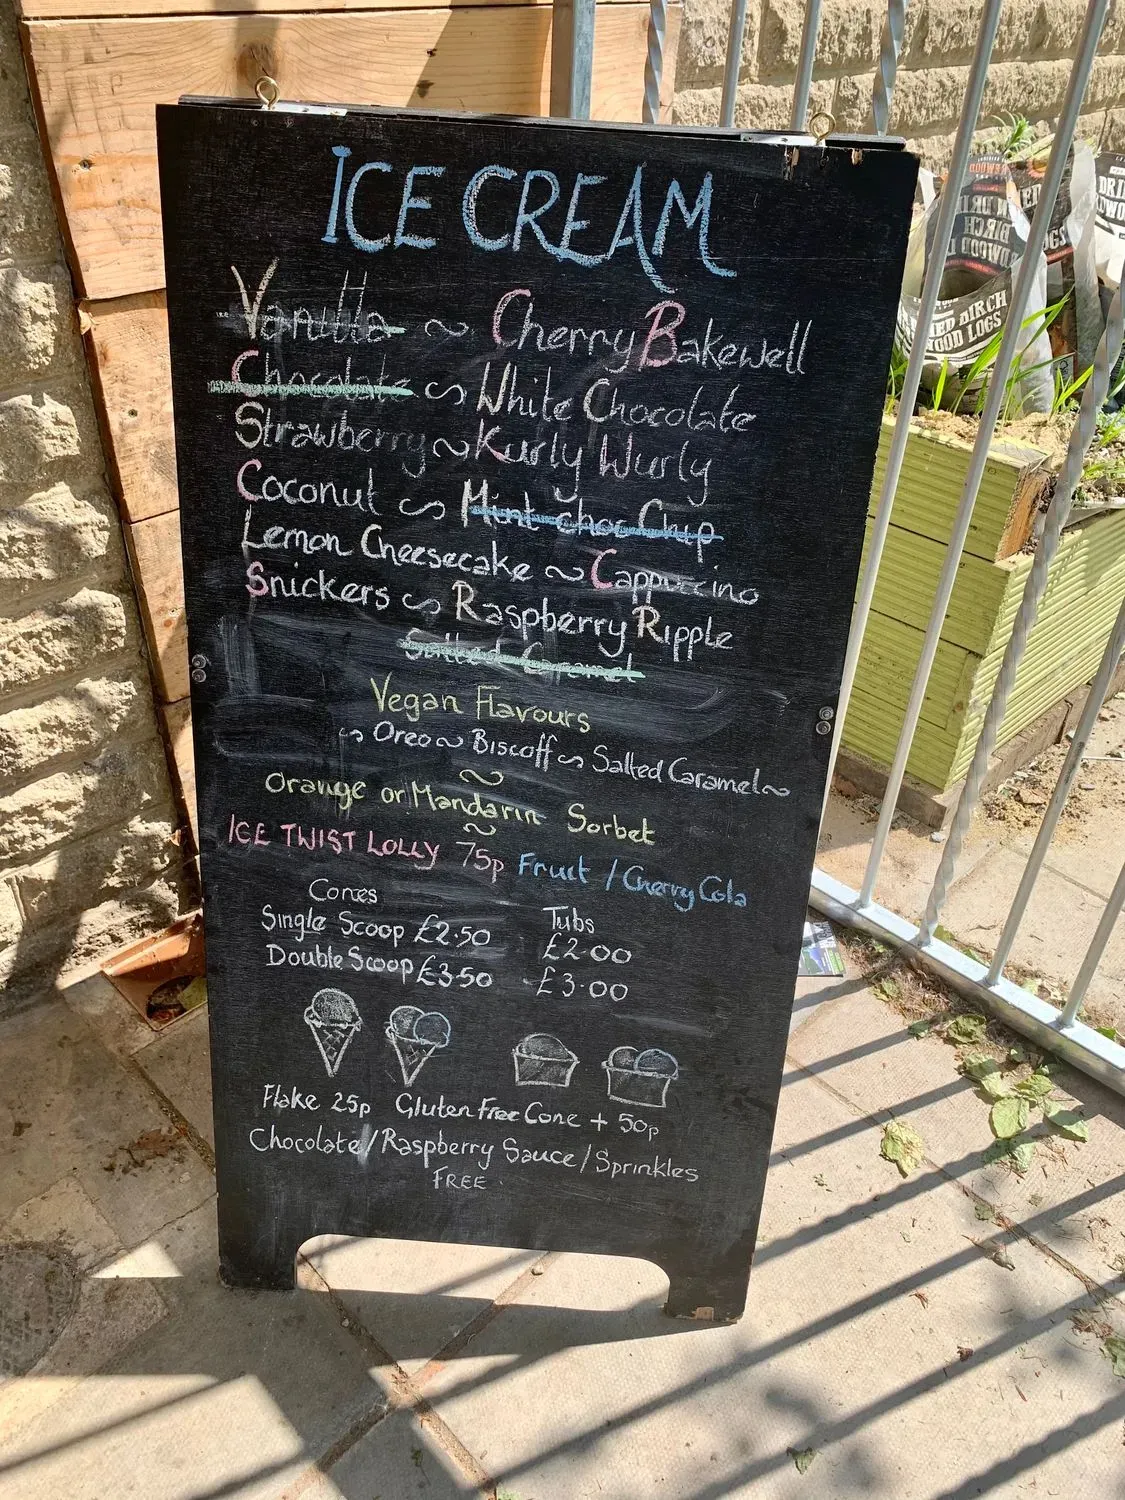 ICE CREAM
Vanilla ~ Cherry Bakewell
Chocolate ~ White Chocolate
Strawberry ~ Kurly Wurly
Coconut ~ Mint choc Chip
Lemon Cheesecake ~ Cappuccino
Snickers ~ Raspberry Ripple
Salted Caramel
Vegan Flavours
~ Oreo ~ Biscoff ~ Salted Caramel ~
~
Orange or Mandarin Sorbet
~
ICE TWIST LOLLY 75p Fruit / Cherry Cola
Cones Tubs
Single Scoop £2.50 £2.00
Double Scoop £3.50 £3.00
Flake 25p Gluten Free Cone + 50p
Chocolate / Raspberry Sauce / Sprinkles
FREE.
BIRCH